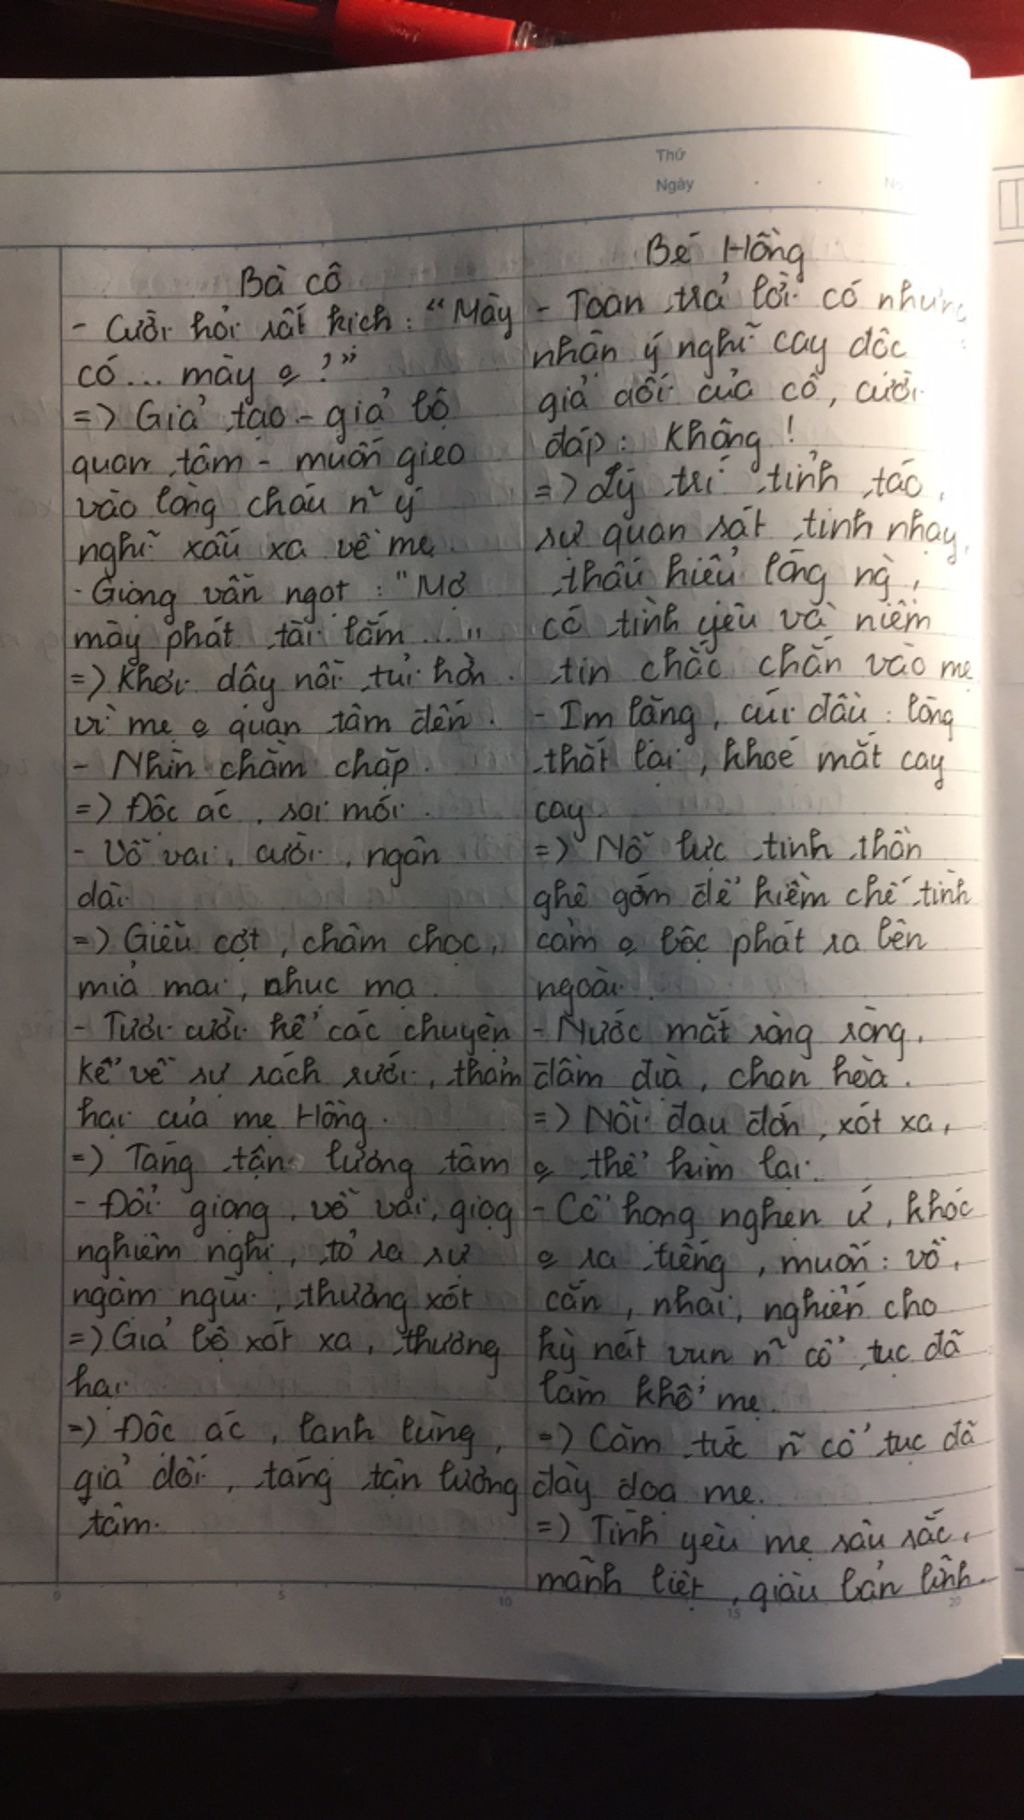 Thứ
Ngày
Bà cô
- Cười hỏi rất kịch: “Mày
có... mày o?”
=> Giả tạo - giả bộ
quan tâm - muốn gieo
vào lòng cháu n~ ý
nghĩ xấu xa về mẹ
- Giọng vẫn ngọt: "Mợ
mày phát tài lắm....."
=> Khơi dậy nỗi tủi hờn
vì mẹ o quan tâm đến.
- Nhìn chằm chặp.
=> Độc ác, soi mói.
- Vỗ vai, cười, ngân
dài
=> Giễu cợt, châm chọc,
mỉa mai, nhục mạ.
- Tươi cười kể các chuyện
kể về sự rách rưới, thảm
hại của mẹ Hồng.
=> Táng tận lương tâm
- Đổi giọng, vỗ vai, giọg
nghiêm nghị, tỏ ra sự
ngậm ngùi, thương xót
=> Giả bộ xót xa, thương
hại
=> Độc ác, lạnh lùng,
giả dối, táng tận lương
tâm.
Bé Hồng
- Toan trả lời có nhưng
nhận ý nghĩ cay độc
giả dối của cô, cười
đáp: Không!
=> Lý trí tỉnh táo,
sự quan sát tinh nhạy,
thấu hiểu lòng ng`,
có tình yêu và niềm
tin chắc chắn vào mẹ
- Im lặng, cúi đầu: lòng
thắt lại, khoé mắt cay
cay.
=> Nỗ lực tinh thần
ghê gớm để kiềm chế tình
cảm o bộc phát ra bên
ngoài.
- Nước mắt ròng ròng,
đầm đìa, chan hòa.
=> Nỗi đau đớn, xót xa,
o thể kìm lại.
- Cổ họng nghẹn ứ, khóc
o ra tiếng, muốn: vồ,
cắn, nhai, nghiến cho
kỳ nát vụn n~ cổ tục đã
làm khổ mẹ.
=> Căm tức n~ cổ tục đã
đày đoạ mẹ.
=> Tình yêu mẹ sâu sắc,
mãnh liệt, giàu bản lĩnh.
0
5
10
15
20